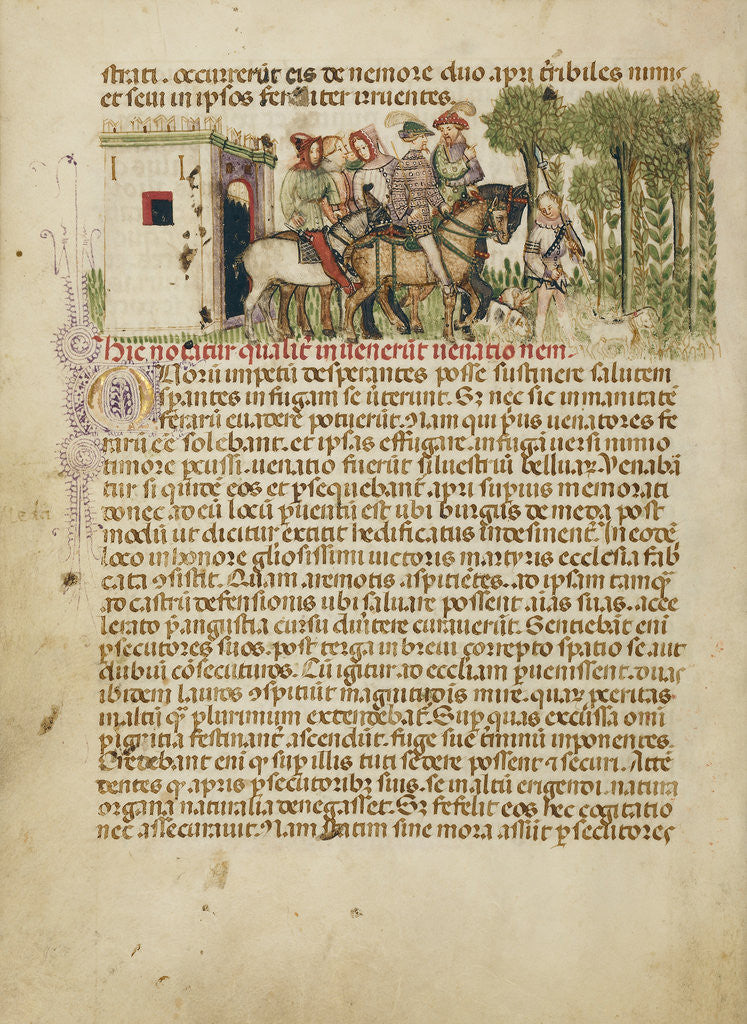 strati. occurrerūt eis de nemore duo apri t̄ribiles nimis
et seui in ipsos feraliter irruentes.
Hic notatur qualit̄ inuenerūt uenationem.
Quorū impetū desperantes posse sustinere salutem
sperantes in fugam se uterunt. Sꝫ nec sic inmanitatē
ferarū euadere potuerūt. Nam qui p̄us uenatores fe
rarū eē solebant. et ipsas effugare. in fugā uersi nimio
timore pcussi. uenatio fuerūt siluestriū belluaꝝ. Venabā
tur si quidē eos et ꝑsequebant̄. apri supius memorati
donec ad eū locū puentū est ubi burgus de meda post
modū ut dicitur extitit hedificatus indesinent̄. In eodē
loco in honore gliosissimi uictoris martyris ecclesia fab̄
cata ꝯsistit. Quam a remotis aspitiētes. ad ipsam tamq̄
ad castrū defensionis ubi saluare possent aīas suas. acce
lerato p̄ angustia cursu diuertere curauerūt. Sentiebāt eni
ꝑsecutores suos. post terga in breui correpto spatio se aut
dubiū cōsecuturos. Cū igitur ad eccliam puenissent. duas
ibidem lauros ꝯspitiūt magnitudīs mire. quaꝝ pceritas
in altū q̄ plurimum extendebat̄. Sup quas excussa omī
pigritia festinant̄ ascendūt. fuge sue t̄minū inponentes.
Credebant eni q̄ sup illis tuti sedere possent ⁊ securi. Attē
dentes q̄ apris ꝑsecutoribꝫ suis. se in altū erigendi. natura
organa naturalia denegasset. Sꝫ fefelit eos hec cogitatio
nec assecurauit. Nam statim sine mora assūt ꝑsecutores